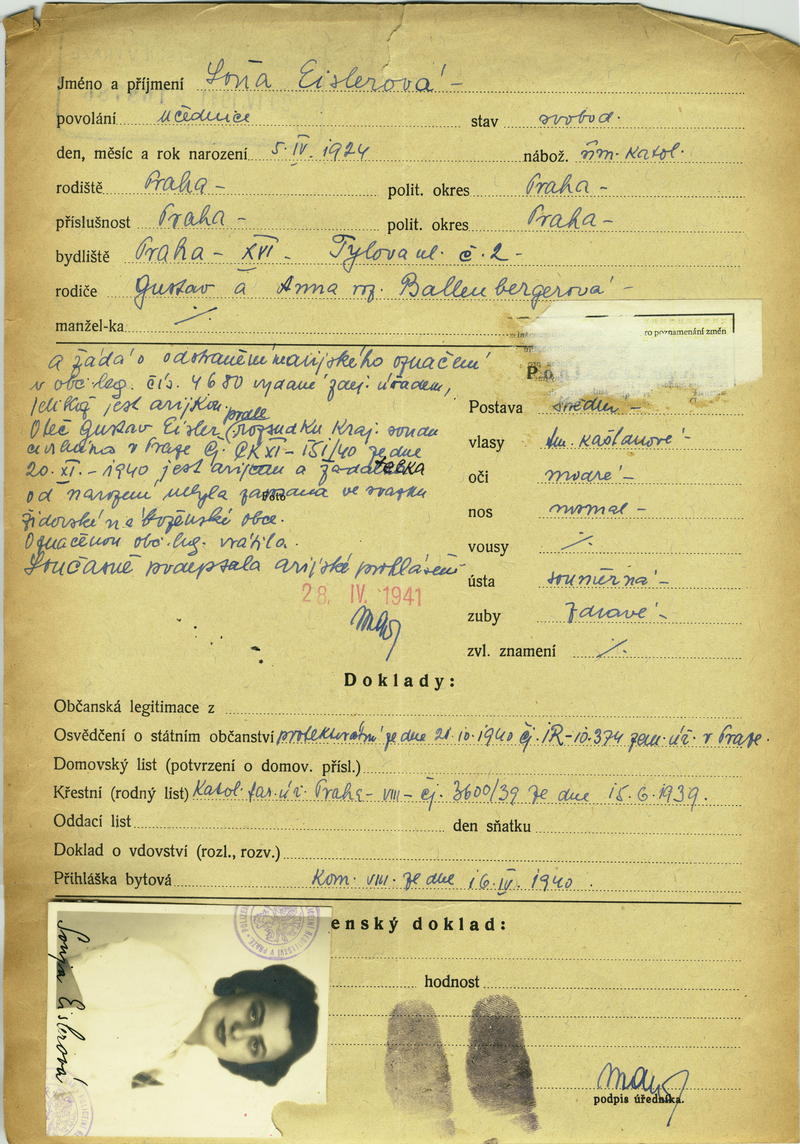 Jméno a příjmení Soňa Eislerová -
povolání učednice stav svobod.
den, měsíc a rok narození 5. IV. 1924 nábož. řím. katol.
rodiště Praha - polit. okres Praha -
příslušnost Praha - polit. okres Praha -
bydliště Praha - XVI - Tylova ul. č. 2 -
rodiče Gustav a Anna roz. Ballenbergerová -
manžel-ka ⁒
ro poznamenání změn
a žádá o odstranění marijského označení
v obč. leg. čís. 4680 vydané zdej. úřadem,
Po
jelikož jest arijkou.
Postava střední -
Otec Gustav Eisler (podle rozsudku Kraj. soudu
vlasy tm. kaštanové -
civilního v Praze čj. CK XI - 151/40 ze dne
20. XI. - 1940, jest arijcem a žadatelka
oči modré -
od narození nebyla zapsána ve svazku
nos normal -
židovské náboženské obce.
Označenou obč. leg. vrátila.
vousy ⁒
Současně podepsala arijské prohlášení
ústa souměrná -
28. IV. 1941
zuby zdravé -
zvl. znamení ⁒
Doklady:
Občanská legitimace z
Osvědčení o státním občanství protektorátní ze dne 21. 10. 1940 čj. IR-10.374 zem. úř. v Praze.
Domovský list (potvrzení o domov. přísl.)
Křestní (rodný list) Katol. far. úř. Praha - VIII - čj. 3600/39 ze dne 15. 6. 1939.
Oddací list den sňatku
Doklad o vdovství (rozl., rozv.)
Přihláška bytová Kom. VIII. ze dne 16. IV. 1940.
enský doklad:
hodnost
Sonja Eislerová
podpis úředníka.